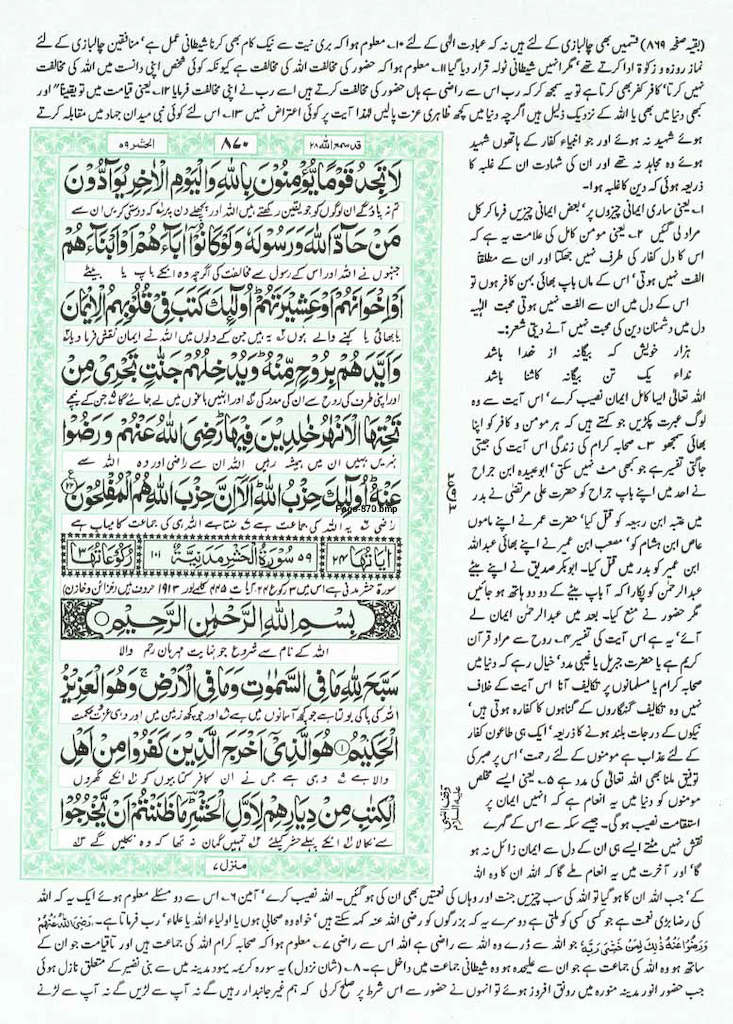 (بقیہ صفحہ ۸۶۹) قسمیں بھی چالبازی کے لئے ہیں نہ کہ عبادت الٰہی کے لئے ۱۰۔ معلوم ہوا کہ بری نیت سے نیک کام بھی کرنا شیطانی عمل ہے' منافقین چالبازی کے لئے
نماز روزہ و زکوٰۃ ادا کرتے تھے' مگر انہیں شیطانی ٹولہ قرار دیا گیا ۱۱۔ معلوم ہوا کہ حضور کی مخالفت اللہ کی مخالفت ہے کیونکہ کوئی شخص اپنی دانست میں اللہ کی مخالفت
نہیں کرتا' کافر کفر بھی کرتا ہے تو یہ سمجھ کر کہ رب اس سے راضی ہے ہاں حضور کی مخالفت کرتے ہیں اسے رب نے اپنی مخالفت فرمایا ۱۲۔ یعنی قیامت میں تو یقیناً" اور
کبھی دنیا میں بھی یا اللہ کے نزدیک ذلیل ہیں اگرچہ دنیا میں کچھ ظاہری عزت پالیں لہٰذا آیت پر کوئی اعتراض نہیں ۱۳۔ اس لئے کوئی نبی میدان جہاد میں مقابلہ کرتے
ہوئے شہید نہ ہوئے اور جو انبیاء کفار کے ہاتھوں شہید
ہوئے وہ مجاہد نہ تھے اور ان کی شہادت ان کے غلبہ کا
ذریعہ ہوئی کہ دین کا غلبہ ہوا۔
۱۔ یعنی ساری ایمانی چیزوں پر' بعض ایمانی چیزیں فرما کر کل
مراد لی گئیں ۲۔ یعنی مومن کامل کی علامت یہ ہے کہ
اس کا دل کفار کی طرف نہیں جھکتا اور ان سے مطلقاً
الفت نہیں ہوتی' اس کے ماں باپ بھائی بہن کافر ہوں تو
اس کے دل میں ان سے الفت نہیں ہوتی محبت الٰہیہ
دل میں دشمنان دین کی محبت نہیں آنے دیتی شعر:۔
ہزار خویش کہ بیگانہ از خدا باشد
نداء یک تن بیگانہ کاشنا باشد
اللہ تعالیٰ ایسا کامل ایمان نصیب کرے' اس آیت سے وہ
لوگ عبرت پکڑیں جو کہتے ہیں کہ ہر مومن و کافر کو اپنا
بھائی سمجھو ۳۔ صحابہ کرام کی زندگی اس آیت کی جیتی
جاگتی تفسیر ہے جو کبھی مٹ نہیں سکتی' ابو عبیدہ ابن جراح
نے احد میں اپنے باپ جراح کو حضرت علی مرتضیٰ نے بدر
میں عتبہ ابن ربیعہ کو قتل کیا' حضرت عمر نے اپنے ماموں
عاص ابن ہشام کو' مصعب ابن عمیر نے اپنے بھائی عبداللہ
ابن عمیر کو بدر میں قتل کیا۔ ابوبکر صدیق نے اپنے بیٹے
عبدالرحمٰن کو پکارا کہ آ باپ بیٹے کے دو دو ہاتھ ہو جائیں
مگر حضور نے منع کیا۔ بعد میں عبدالرحمٰن ایمان لے
آئے' یہ ہے اس آیت کی تفسیر ۴۔ روح سے مراد قرآن
کریم ہے یا حضرت جبریل یا غیبی مدد' خیال رہے کہ دنیا میں
صحابہ کرام یا مسلمانوں پر تکالیف آنا اس آیت کے خلاف
نہیں وہ تکالیف گنہگاروں کے گناہوں کا کفارہ ہوتی ہیں'
نیکوں کے درجات بلند ہونے کا ذریعہ' ایک ہی طاعون کفار
کے لئے عذاب ہے مومنوں کے لئے رحمت' اس پر صبر کی
توفیق ملنا بھی اللہ تعالیٰ کی مدد ہے ۵۔ یعنی ایسے مخلص
مومنوں کو دنیا میں یہ انعام ہے کہ انہیں ایمان پر
استقامت نصیب ہو گی۔ جیسے سکہ سے اس کے گہرے
نقش نہیں مٹتے ایسے ہی ان کے دل سے ایمان زائل نہ ہو
گا' اور آخرت میں یہ انعام ملے گا کہ اللہ ان کا وہ اللہ
قد سمع اللہ ۲۸
۸۷۰
الحشر ۵۹
لَا تَجِدُ قَوْمًا يُّؤْمِنُوْنَ بِاللّٰهِ وَالْيَوْمِ الْاٰخِرِ يُوَآدُّوْنَ
تم نہ پاؤ گے ان لوگوں کو جو یقین رکھتے ہیں اللہ اور پچھلے دن پر کہ دوستی کریں ان سے
مَنْ حَآدَّ اللّٰهَ وَرَسُوْلَهٗ وَلَوْ كَانُوْٓا اٰبَآءَهُمْ اَوْ اَبْنَآءَهُمْ
جنہوں نے اللہ اور اس کے رسول سے مخالفت کی اگرچہ وہ انکے باپ یا بیٹے
اَوْ اِخْوَانَهُمْ اَوْ عَشِيْرَتَهُمْ ؕ اُولٰٓئِكَ كَتَبَ فِيْ قُلُوْبِهِمُ الْاِيْمَانَ
یا بھائی یا کنبے والے ہوں یہ ہیں جن کے دلوں میں اللہ نے ایمان نقش فرما دیا
وَاَيَّدَهُمْ بِرُوْحٍ مِّنْهُ ؕ وَيُدْخِلُهُمْ جَنّٰتٍ تَجْرِيْ مِنْ
اور اپنی طرف کی روح سے ان کی مدد کی اور انہیں باغوں میں لے جائے گا جن کے نیچے
تَحْتِهَا الْاَنْهٰرُ خٰلِدِيْنَ فِيْهَا ؕ رَضِيَ اللّٰهُ عَنْهُمْ وَرَضُوْا
نہریں بہیں ان میں ہمیشہ رہیں اللہ ان سے راضی اور وہ اللہ سے
عَنْهُ ؕ اُولٰٓئِكَ حِزْبُ اللّٰهِ ؕ اَلَآ اِنَّ حِزْبَ اللّٰهِ هُمُ الْمُفْلِحُوْنَ ۲۲
Page-870.bmp
راضی یہ اللہ کی جماعت ہے سنتا ہے اللہ ہی کی جماعت کامیاب ہے
اٰيَاتُهَا ۲۴
۵۹ سُوْرَةُ الْحَشْرِ مَدَنِيَّةٌ ۱۰۱
رُكُوْعَاتُهَا ۳
سورۃ حشر مدنی ہے اس میں ۳ رکوع ۲۴ آیات ۴۴۵ کلمے اور ۱۹۱۳ حروف ہیں (خزائن و خازن)
بِسْمِ اللّٰهِ الرَّحْمٰنِ الرَّحِيْمِ
اللہ کے نام سے شروع جو نہایت مہربان رحم والا
سَبَّحَ لِلّٰهِ مَا فِي السَّمٰوٰتِ وَمَا فِي الْاَرْضِ ۚ وَهُوَ الْعَزِيْزُ
اللہ کی پاکی بولتا ہے جو کچھ آسمانوں میں ہے اور جو کچھ زمین میں اور وہی عزت و حکمت
الْحَكِيْمُ ۱ هُوَ الَّذِيْٓ اَخْرَجَ الَّذِيْنَ كَفَرُوْا مِنْ اَهْلِ
والا ہے وہی ہے جس نے ان کافر کتابیوں کو انکے گھروں
الْكِتٰبِ مِنْ دِيَارِهِمْ لِاَوَّلِ الْحَشْرِ ؔؕ مَا ظَنَنْتُمْ اَنْ يَّخْرُجُوْا
سے نکالا انکے پہلے حشر کیلئے تمہیں گمان نہ تھا کہ وہ نکلیں گے
منزل ۷
وقف النبی علیہ السلام
کے' جب اللہ ان کا ہو گیا تو اللہ کی سب چیزیں جنت اور وہاں کی نعمتیں بھی ان کی ہو گئیں۔ اللہ نصیب کرے' آمین ۶۔ اس سے دو مسئلے معلوم ہوئے ایک یہ کہ اللہ
کی رضا بڑی نعمت ہے جو کسی کسی کو ملتی ہے دوسرے یہ کہ بزرگوں کو رضی اللہ عنہ کہہ سکتے ہیں' خواہ وہ صحابی ہوں یا اولیاء اللہ یا علماء' رب فرماتا ہے۔ رَضِیَ اللّٰهُ عَنْهُمْ
وَرَضُوْا عَنْهُ ذٰلِكَ لِمَنْ خَشِیَ رَبَّهٗ جو اللہ سے ڈرے وہ اللہ سے راضی ہے اللہ اس سے راضی ۷۔ معلوم ہوا کہ صحابہ کرام اللہ کی جماعت ہیں اور تاقیامت جو ان کے
ساتھ ہو وہ اللہ کی جماعت ہے جو ان سے علیحدہ ہو وہ شیطانی جماعت میں داخل ہے۔ ۸۔ (شان نزول) یہ سورہ کریمہ یہود مدینہ میں سے بنی نضیر کے متعلق نازل ہوئی
جب حضور انور مدینہ منورہ میں رونق افروز ہوئے تو انہوں نے حضور سے اس شرط پر صلح کر لی کہ ہم غیر جانبدار رہیں گے نہ آپ سے لڑیں گے نہ آپ سے لڑنے